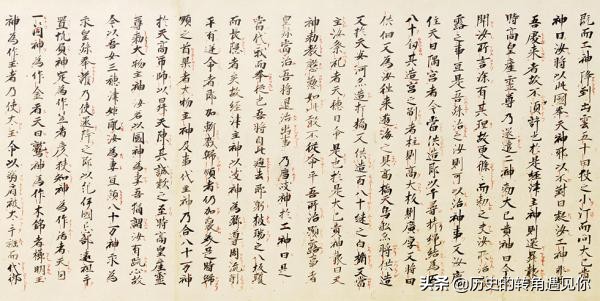 既而二神降到出雲五十田狹之小汀而問大己貴
神曰汝將以此國奉天神耶以不對曰疑汝二神非是
吾處來者故不須許也於是經津主神則還昇報告
時高皇産靈尊乃還遣二神勅大己貴神曰今者
聞汝所言深有其理故更條々而勅之夫汝所治顯
露之事宜是吾孫治之汝則可以治神事又汝應
住天日隅宮者今當供造即以千尋栲繩結爲百
八十紐其造宮之制者柱則高大板則廣厚又將田
供佃又爲汝往來遊海之具高橋浮橋及天鳥船亦將供造
又於天安河亦造打橋又供造百八十縫之白楯又當
主汝祭祀者天穗日命是也於是大己貴神報曰天
神勅教慇懃如此敢不從命乎吾所治顯露事者
皇孫當治吾將退治幽事乃薦岐神於二神曰是
當代我而奉從也吾將自此避去即躬披瑞之八坂瓊
而長隱者矣故經津主神以岐神爲鄕導周流削
平有逆命者即加斬戮歸順者仍加褒美是時歸
順之首渠者大物主神及事代主神乃合八十万神
於天高市帥以昇天陳其誠款之至時高皇産靈
尊勅大物主神汝若以國神爲妻吾猶謂汝有疏心故
今以吾女三穗津姬配汝爲妻宜領八十万神永爲
皇孫奉護乃使還降之即以紀伊國忌部遠祖手
置帆負神定爲作笠者彦狹知神爲作盾者天目
一箇神爲作金者天日鷲神爲作木綿者櫛明玉
神爲作玉者乃使太玉命以弱肩被太手繦而代御
头条 @历史的转角遇见你